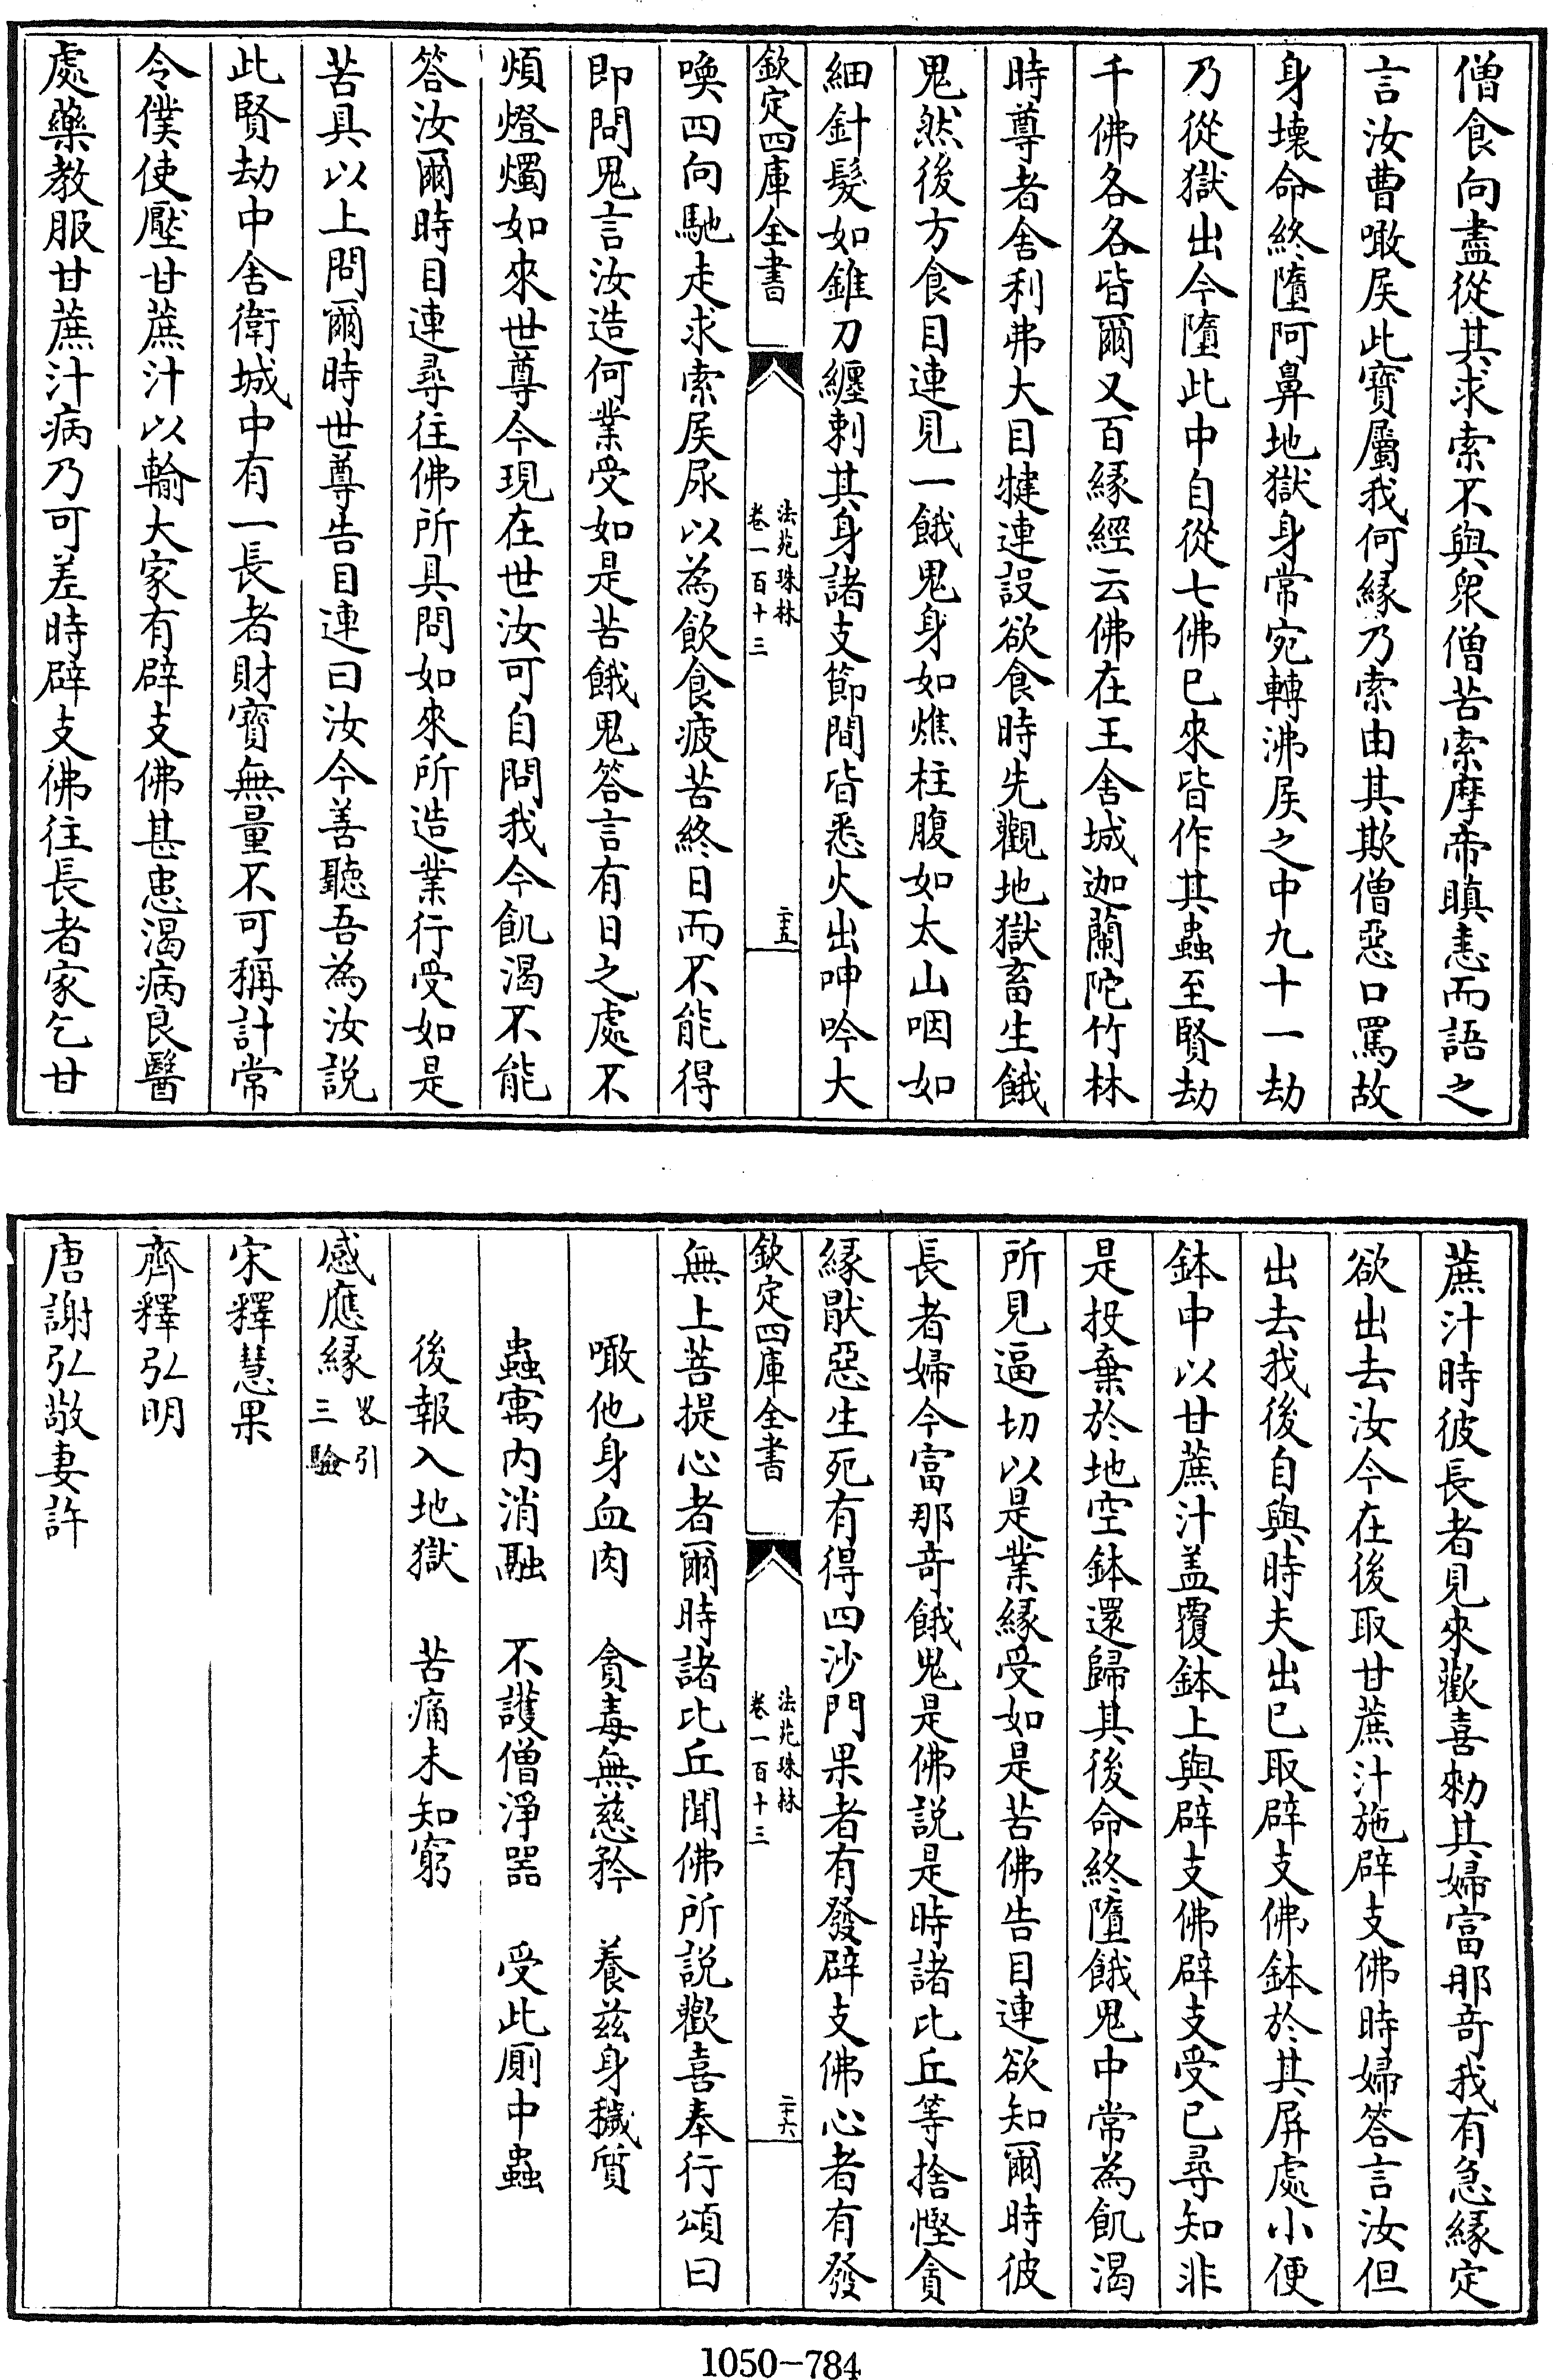 僧食向盡從其求索不與衆僧苦索摩帝瞋恚而語之
言汝曹噉屎此寳屬我何縁乃索由其欺僧惡口罵故
身壊命終墮阿鼻地獄身常宛轉沸屎之中九十一劫
乃從獄出今墮此中自從七佛已來皆作其蟲至賢劫
千佛各各皆爾又百縁經云佛在王舍城迦蘭陀竹林
時尊者舍利弗大目犍連設欲食時先觀地獄畜生餓
鬼然後方食目連見一餓鬼身如燋柱腹如太山咽如
細針髮如錐刀纏刺其身諸支節間皆悉火出呻吟大
欽定四庫全書
法苑珠林
卷一百十三
二十五
喚四向馳走求索屎尿以為飲食疲苦終日而不能得
即問鬼言汝造何業受如是苦餓鬼答言有日之處不
煩燈燭如來世尊今現在世汝可自問我今飢渴不能
答汝爾時目連尋往佛所具問如來所造業行受如是
苦具以上問爾時世尊告目連曰汝今善聽吾為汝説
此賢劫中舍衛城中有一長者財寳無量不可稱計常
令僕使壓甘蔗汁以輸大家有辟支佛甚患渴病良醫
處藥教服甘蔗汁病乃可差時辟支佛往長者家乞甘
蔗汁時彼長者見來歡喜勅其婦富那竒我有急縁定
欲出去汝今在後取甘蔗汁施辟支佛時婦答言汝但
出去我後自與時夫出已取辟支佛鉢於其屏處小便
鉢中以甘蔗汁盖覆鉢上與辟支佛辟支受已尋知非
是投棄於地空鉢還歸其後命終墮餓鬼中常為飢渴
所見逼切以是業縁受如是苦佛告目連欲知爾時彼
長者婦今富那竒餓鬼是佛説是時諸比丘等捨慳貪
縁猒惡生死有得四沙門果者有發辟支佛心者有發
欽定四庫全書
法苑珠林
卷一百十三
二十六
無上菩提心者爾時諸比丘聞佛所説歡喜奉行頌曰
噉他身血肉　貪毒無慈矜　養兹身穢質
蟲寓内消融　不護僧淨器　受此厠中蟲
後報入地獄　苦痛未知窮
感應縁畧引三驗
宋釋慧果
齊釋弘明
唐謝弘敞妻許
1050-784